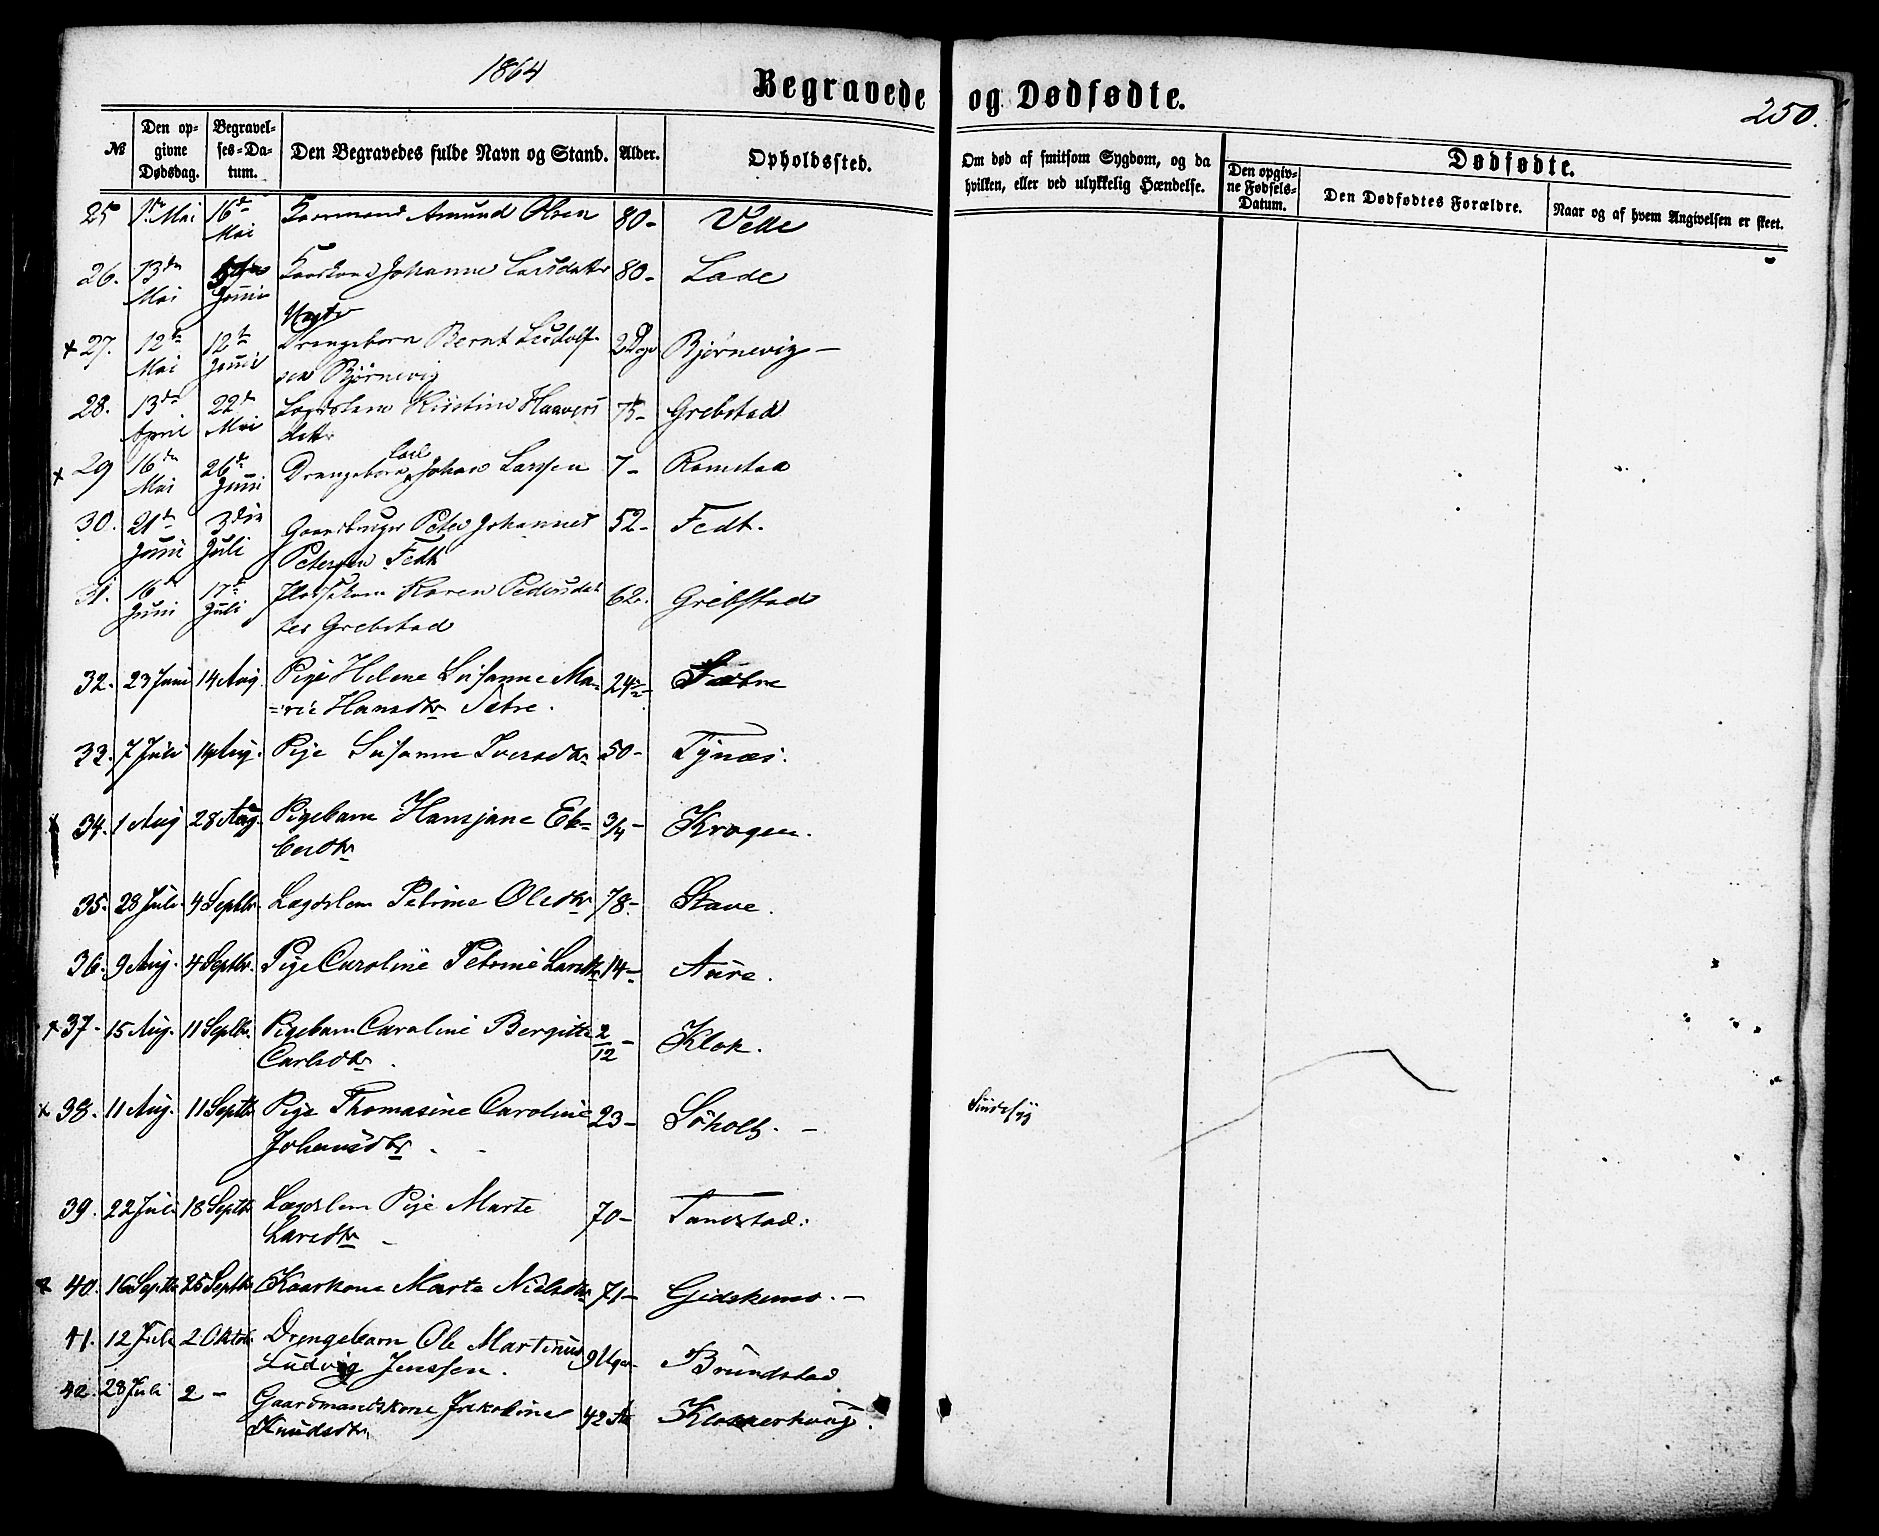 1864
Begravede og Dødfødte.
250.
№
Den opgivne Dødsdag.
Begravelses-Datum.
Den Begravedes fulde Navn og Stand.
Alder.
Opholdssted.
Om død af smitsom Sygdom, og da hvilken, eller ved ulykkelig Hændelse.
Dødfødte.
Den opgivne Fødsels-Datum.
Den Dødfødtes Forældre.
Naar og af hvem Angivelsen er skeet.
25 1. Mai 16de Mai Kaarmand Amund Olsen 80- Velle
26. 13de Mai Junii Kaarkone Johanne Larsdatter 80- Lade
x 27. 12te Mai 12te Junii Drengebarn Bernt Ludolf-
sen Bjørnevig 2 Dge Bjørnevig -
28. 13de April 22de Mai Lægdslem Kristine Haavers
datter 75- Grebstad
x 29 16de Mai 26de Junii Drengebarn Carl Johan Larssen 7- Ramstad
30. 21de Junii 3die Juli Gaardbruger Peter Johannes
Petersen Fedt 52- Fedt.
31. 16de Juni 17de Juli Karen Pedersdat
ter Grebstad 62. Grebstad
32. 23 Juni 14 Aug. Pige Helene Susanne Ma=
=rie Hansdtr Sætre. 24 Sætre
33. 7 Juli 14 Aug. Pige Susanne Iversdtr 50- Tynæs.
x 34. 1 Aug 28 Aug. Pigebarn Hansjane El=
bertdtr 3/4- Krogen.
35. 28 Juli 4 Septbr. Lægdslem Petrine Olsdtr 78- Stave.
36. 9 Aug. 4 Septbr. Pige Caroline Petrine Larsdtr 14- Aure.
x 37- 15 Aug. 11 Septbr. Pigebarn Caroline Bergitte
Carlsdtr. 2/12 - Klok.
x 38. 11 Aug. 11 Septbr Pige Thomasine Caroline
Johansdtr 23- Søholt. -
39. 22 Juli 18 Septbr Lægdslem Pige Marte
Larsdtr - 70- Tandstad.
x 40. 16 Septbr 25 Septbr Kaarkone Marte Nielsdtr 71- Gidskemo. -
41. 12 Juli 2 Oktob. Drengebarn Ole Martinus
Ludvig Jenssen. 9 Uger- Brundstad
42. 28 Juli 2 - Gaardmandskone Jakobine
Knudsdtr. 42 Klokkerhoug.